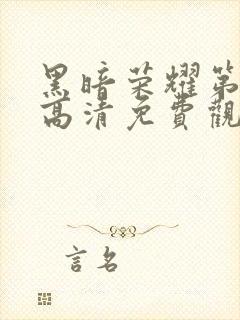 黑暗荣耀第
高清免費觀
言名